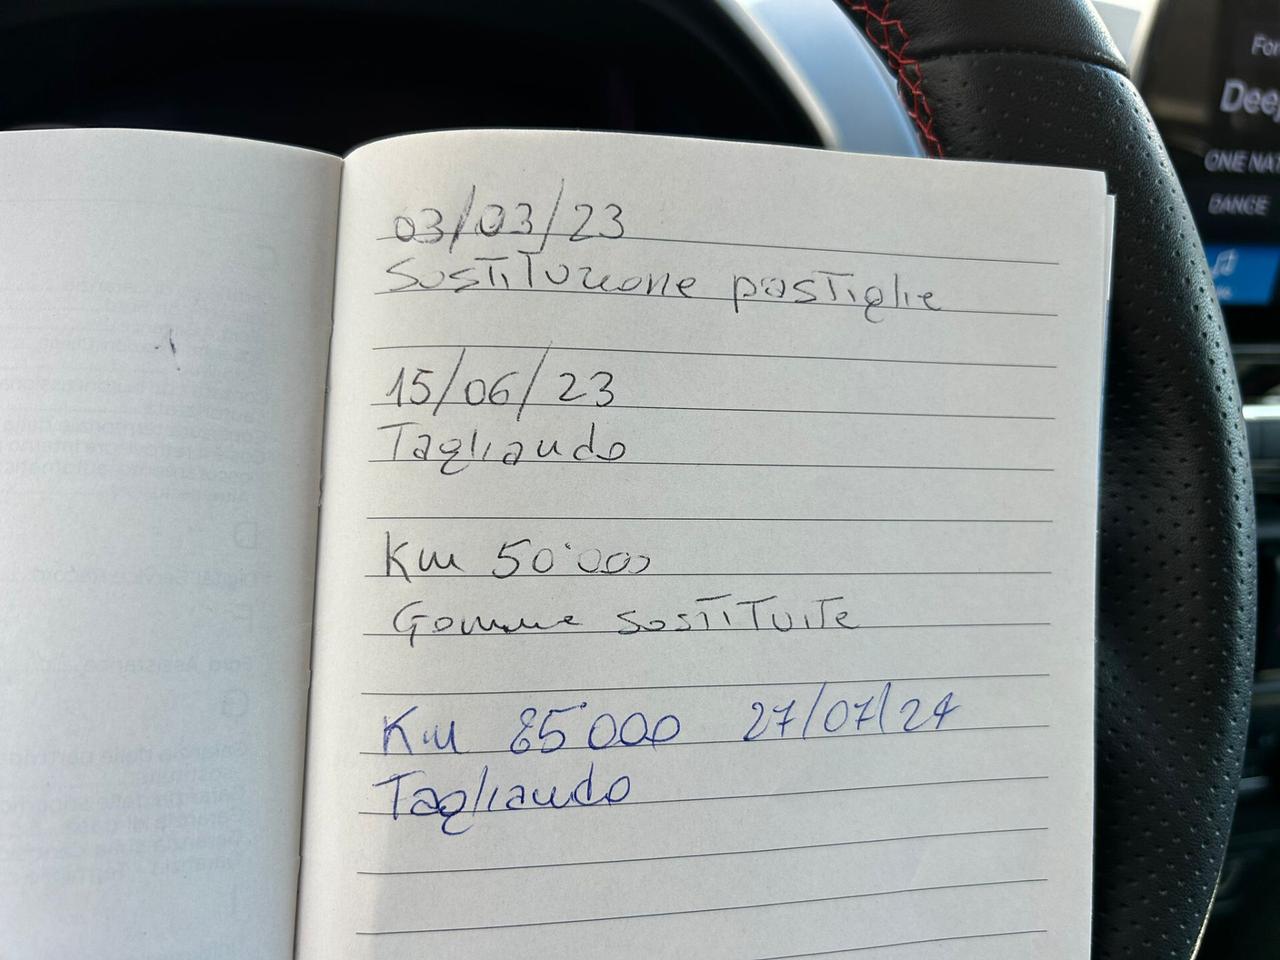 03/03/23
Sostituzione pastiglie
15/06/23
Tagliando
Km 50'000
Gomme sostituite
Km 85'000 27/07/24
Tagliando
Dee
ONE NA
DANCE